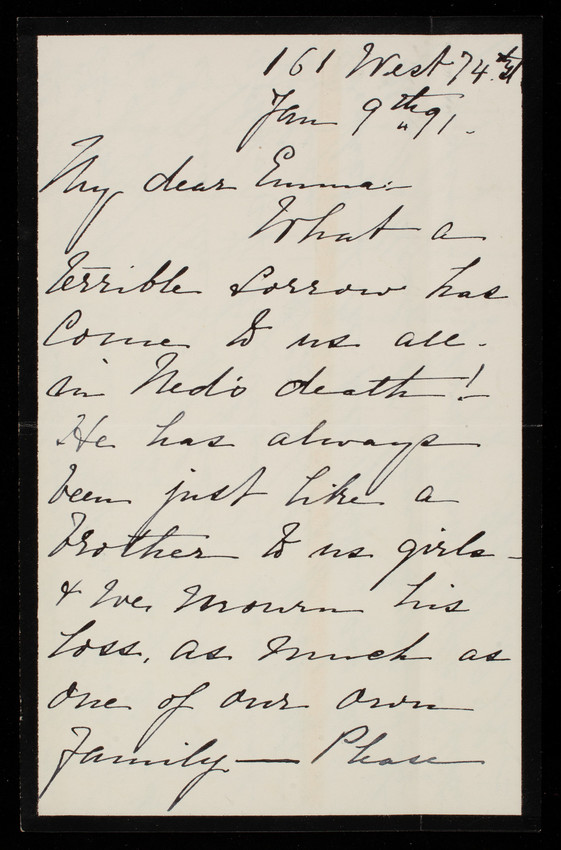 161 West 74th St
Jan 9th "91.
My dear Emma:
What a
terrible sorrow has
come to us all -
in Ned's death!
He has always
been just like a
brother to us girls -
& we mourn his
loss, as much as
one of our own
family — Please